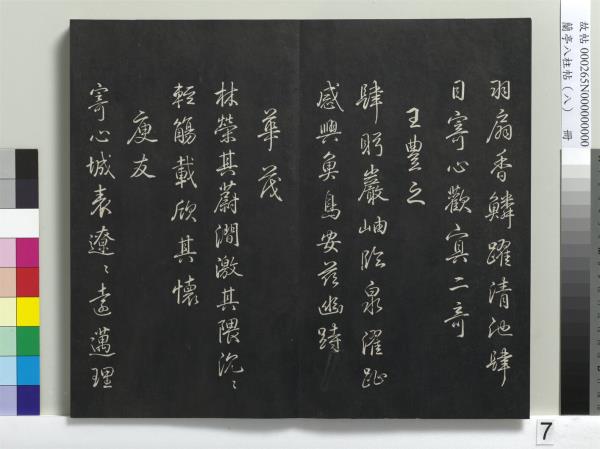 故帖 000265N000000000
蘭亭八柱帖(八) 冊
羽扇霄鱗躍清池歸
目寄心歡冥二奇
王豐之
肆眄巖岫臨泉濯趾
感興魚鳥安茲幽跱
華茂
林榮其蔚澗激其隈汎〻
輕觴載欣其懷
庾友
寄心域表遼〻遠邁理
7